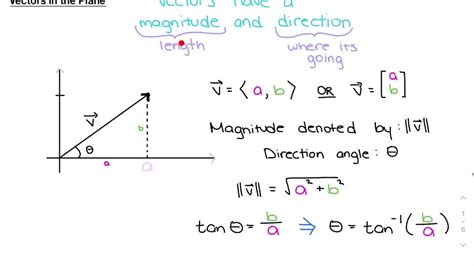 Vectors in the Plane
vectors have a
magnitude and direction
length
where its
going
v⃗
b
θ
a
a
v⃗ = ⟨a, b⟩ OR v⃗ = [a b]
Magnitude denoted by: ||v⃗||
Direction angle: θ
||v⃗|| = √a² + b²
tan θ = b/a ⇒ θ = tan⁻¹(b/a)
1
6